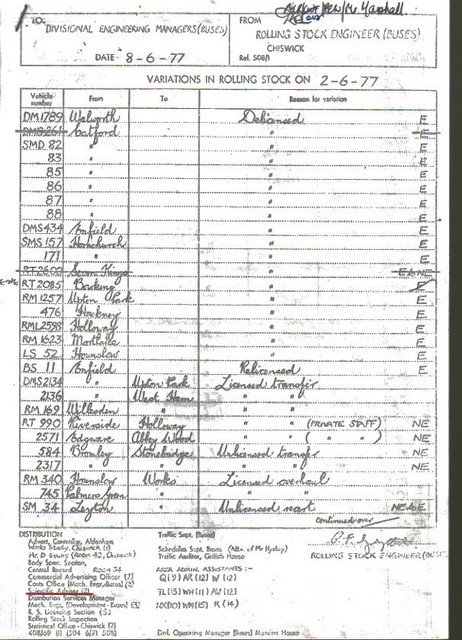 TO
DIVISIONAL ENGINEERING MANAGERS (BUSES)
DATE 8-6-77
FROM
ROLLING STOCK ENGINEER (BUSES)
CHISWICK
Ref. 508/1
VARIATIONS IN ROLLING STOCK ON 2-6-77
Vehicle number From To Reason for variation
DM1789 Walworth Delicensed E
DMS261 Catford " E
SMD 82 " " E
83 " " E
85 " " E
86 " " E
87 " " E
88 " " E
DMS434 Enfield " E
SMS 157 Hornchurch " E
171 " " E
RT2600 Seven Kings " E&NE
RT 2085 Barking " E
RM 1257 Upton Park " E
476 Hackney " E
RML2598 Holloway " E
RM 1623 Mortlake " E
LS 52 Hounslow " E
BS 11 Enfield Relicensed E
DMS2134 Upton Park Licensed transfer
2136 West Ham " "
RM 169 Willesden " " "
RT 990 Riverside Holloway " " (PRIVATE STAFF) NE
2571 Edgware Abbey Wood " " ( " " ) NE
584 Bromley Stonebridge Unlicensed transfer NE
2317 " " " " NE
RM 340 Hounslow Works Licensed overhaul
745 Palmers Green " " "
SM 34 Leyton " Unlicensed NE&E
continued over
ROLLING STOCK ENGINEER (BUSES)
DISTRIBUTION
Advert. Controller, Aldenham
Works Study, Chiswick (1)
Mr D Evans (Room 42, Chiswick)
Body Supr. Section,
Central Record ROOM 34
Commercial Advertising Officer (7)
Costs Office (Mech. Engr. Buses) (2)
Scientific Adviser (2)
Distribution Services Manager
Mech. Engr. (Development - Buses) (3)
R. S. Licensing Section (3)
Rolling Stock Inspection
Statistical Office - Chiswick (7)
Traffic Supt. (Buses)
Schedules Supt. Buses (Attn. of Mr Hyslop)
Traffic Auditor, Griffith House
AREA ADMIN. ASSISTANTS -
Q(9) AR(12) W(12)
TL(13) WH(11) AV(12)
WN(15) R(14)
Dml. Operating Manager (Buses) Mansion House